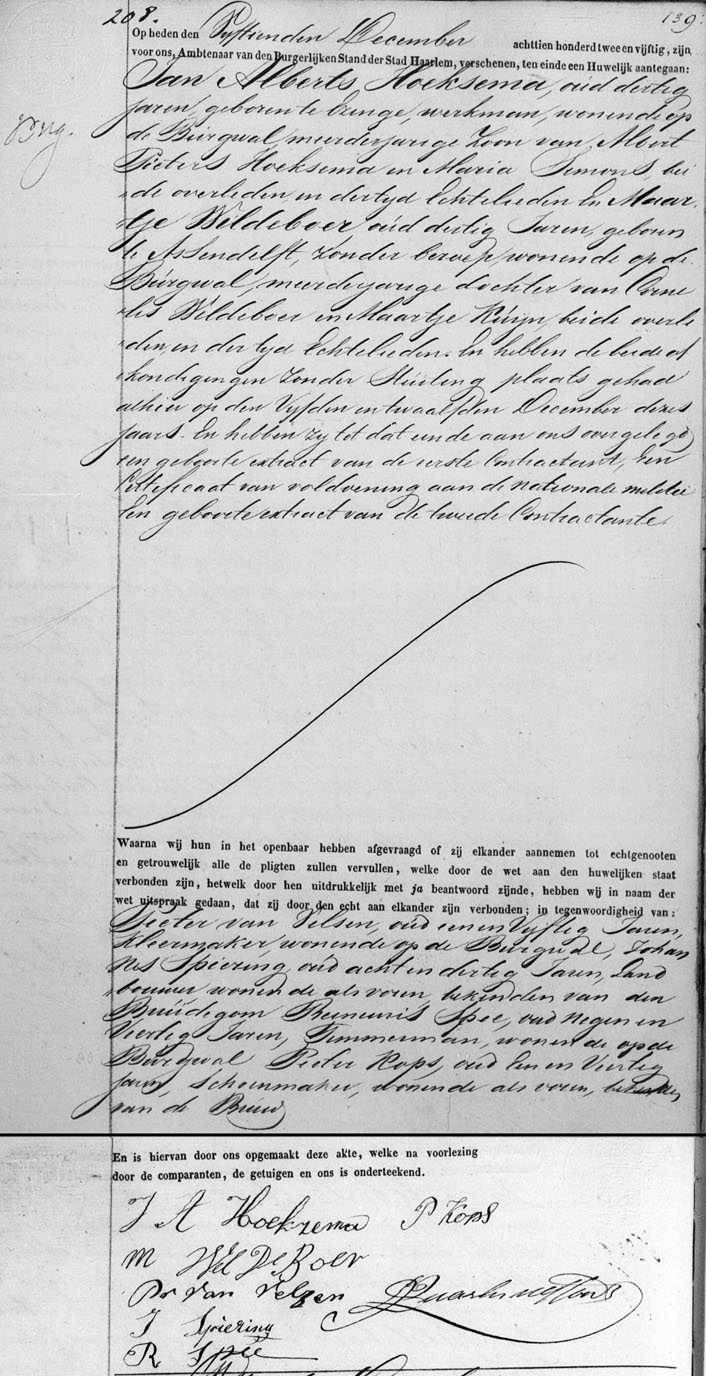 208.
139.
Op heden den Vyftienden December achttien honderd twee en vijftig, zijn
voor ons, Ambtenaar van den Burgerlijken Stand der Stad Haarlem, verschenen, ten einde een Huwelijk aantegaan:
Jan Alberts Hoeksema, oud dertig
jaren, geboren te wenige, werkman, wonende op
de Burgwal, meerderjarige Zoon van Albert
Pieters Hoeksema en Maria Simons, bei
de overleden, in dertyd Echtelieden En Maar
tje Wildeboer, oud dertig Jaren, geboren
te Assendelft, zonder beroep, wonende op de
Burgwal, meerderjarige dochter van Corne
lis Wildeboer en Maartje Kuijn, beide overle
den, in der tyd Echtelieden. En hebben de beide af
kondigingen zonder Stuiting plaats gehad
alhier op den Vyfden en twaalfden December dezes
jaars. En hebben zy tot dat einde aan ons overgelegd
een geboorte extract van de eerste Contractant, Een
Certificaat van voldoening aan de nationale militie
Een geboorte extract van de tweede Contractante.
Waarna wij hun in het openbaar hebben afgevraagd of zij elkander aannemen tot echtgenooten
en getrouwelijk alle de pligten zullen vervullen, welke door de wet aan den huwelijken staat
verbonden zijn, hetwelk door hen uitdrukkelijk met ja beantwoord zijnde, hebben wij in naam der
wet uitspraak gedaan, dat zij door den echt aan elkander zijn verbonden; in tegenwoordigheid van:
Pieter van Velsen, oud een en Vyftig Jaren,
kleermaker, wonende op de Burgwal, Johan
nes Spiering, oud acht en dertig Jaren, Land
bouwer wonende als voren, bekenden van den
Bruidegom Remeuris Spee, oud negen en
Viertig Jaren, Timmerman, wonende op de
Burgwal Pieter Kops, oud Een en Viertig
Jaren, Schoenmaker, wonende als voren, bekenden
van de Bruid
En is hiervan door ons opgemaakt deze akte, welke na voorlezing
door de comparanten, de getuigen en ons is onderteekend.
J A Hoekzema P Kops
M Wil De Boer
Pr van Velzen
J Spiering
R Spee